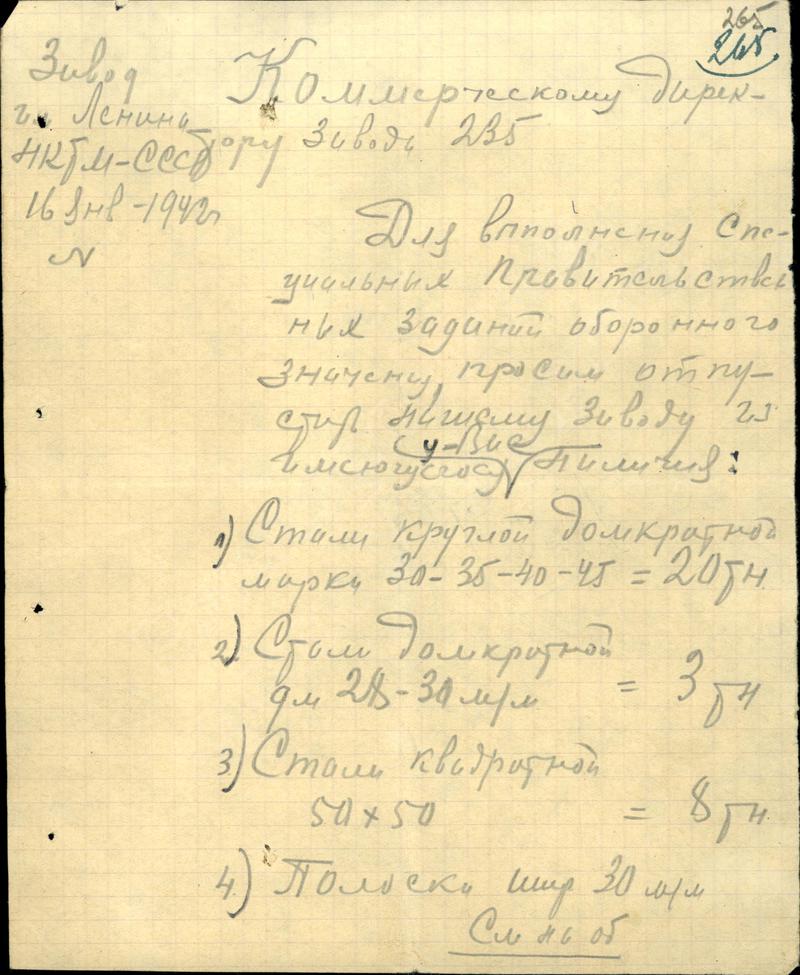 265
265
Завод
им Ленина
НКТМ-СССР
16 Янв-1942г
N
Коммерческому дирек-
тору Завода 235
Для выполнения спе-
циальных Правительствен
ных заданий оборонного
значения, просим отпу-
стить нашему Заводу из
имеющегося у-Вас Наличия:
1) Стали круглой домкратной
марки 30-35-40-45 = 20 тн
2) Стали домкратной
дм 28-30 м/м = 3 тн
3) Стали квадратной
50 x 50 = 8 тн
4) Полоски шир 30 м/м
См на об